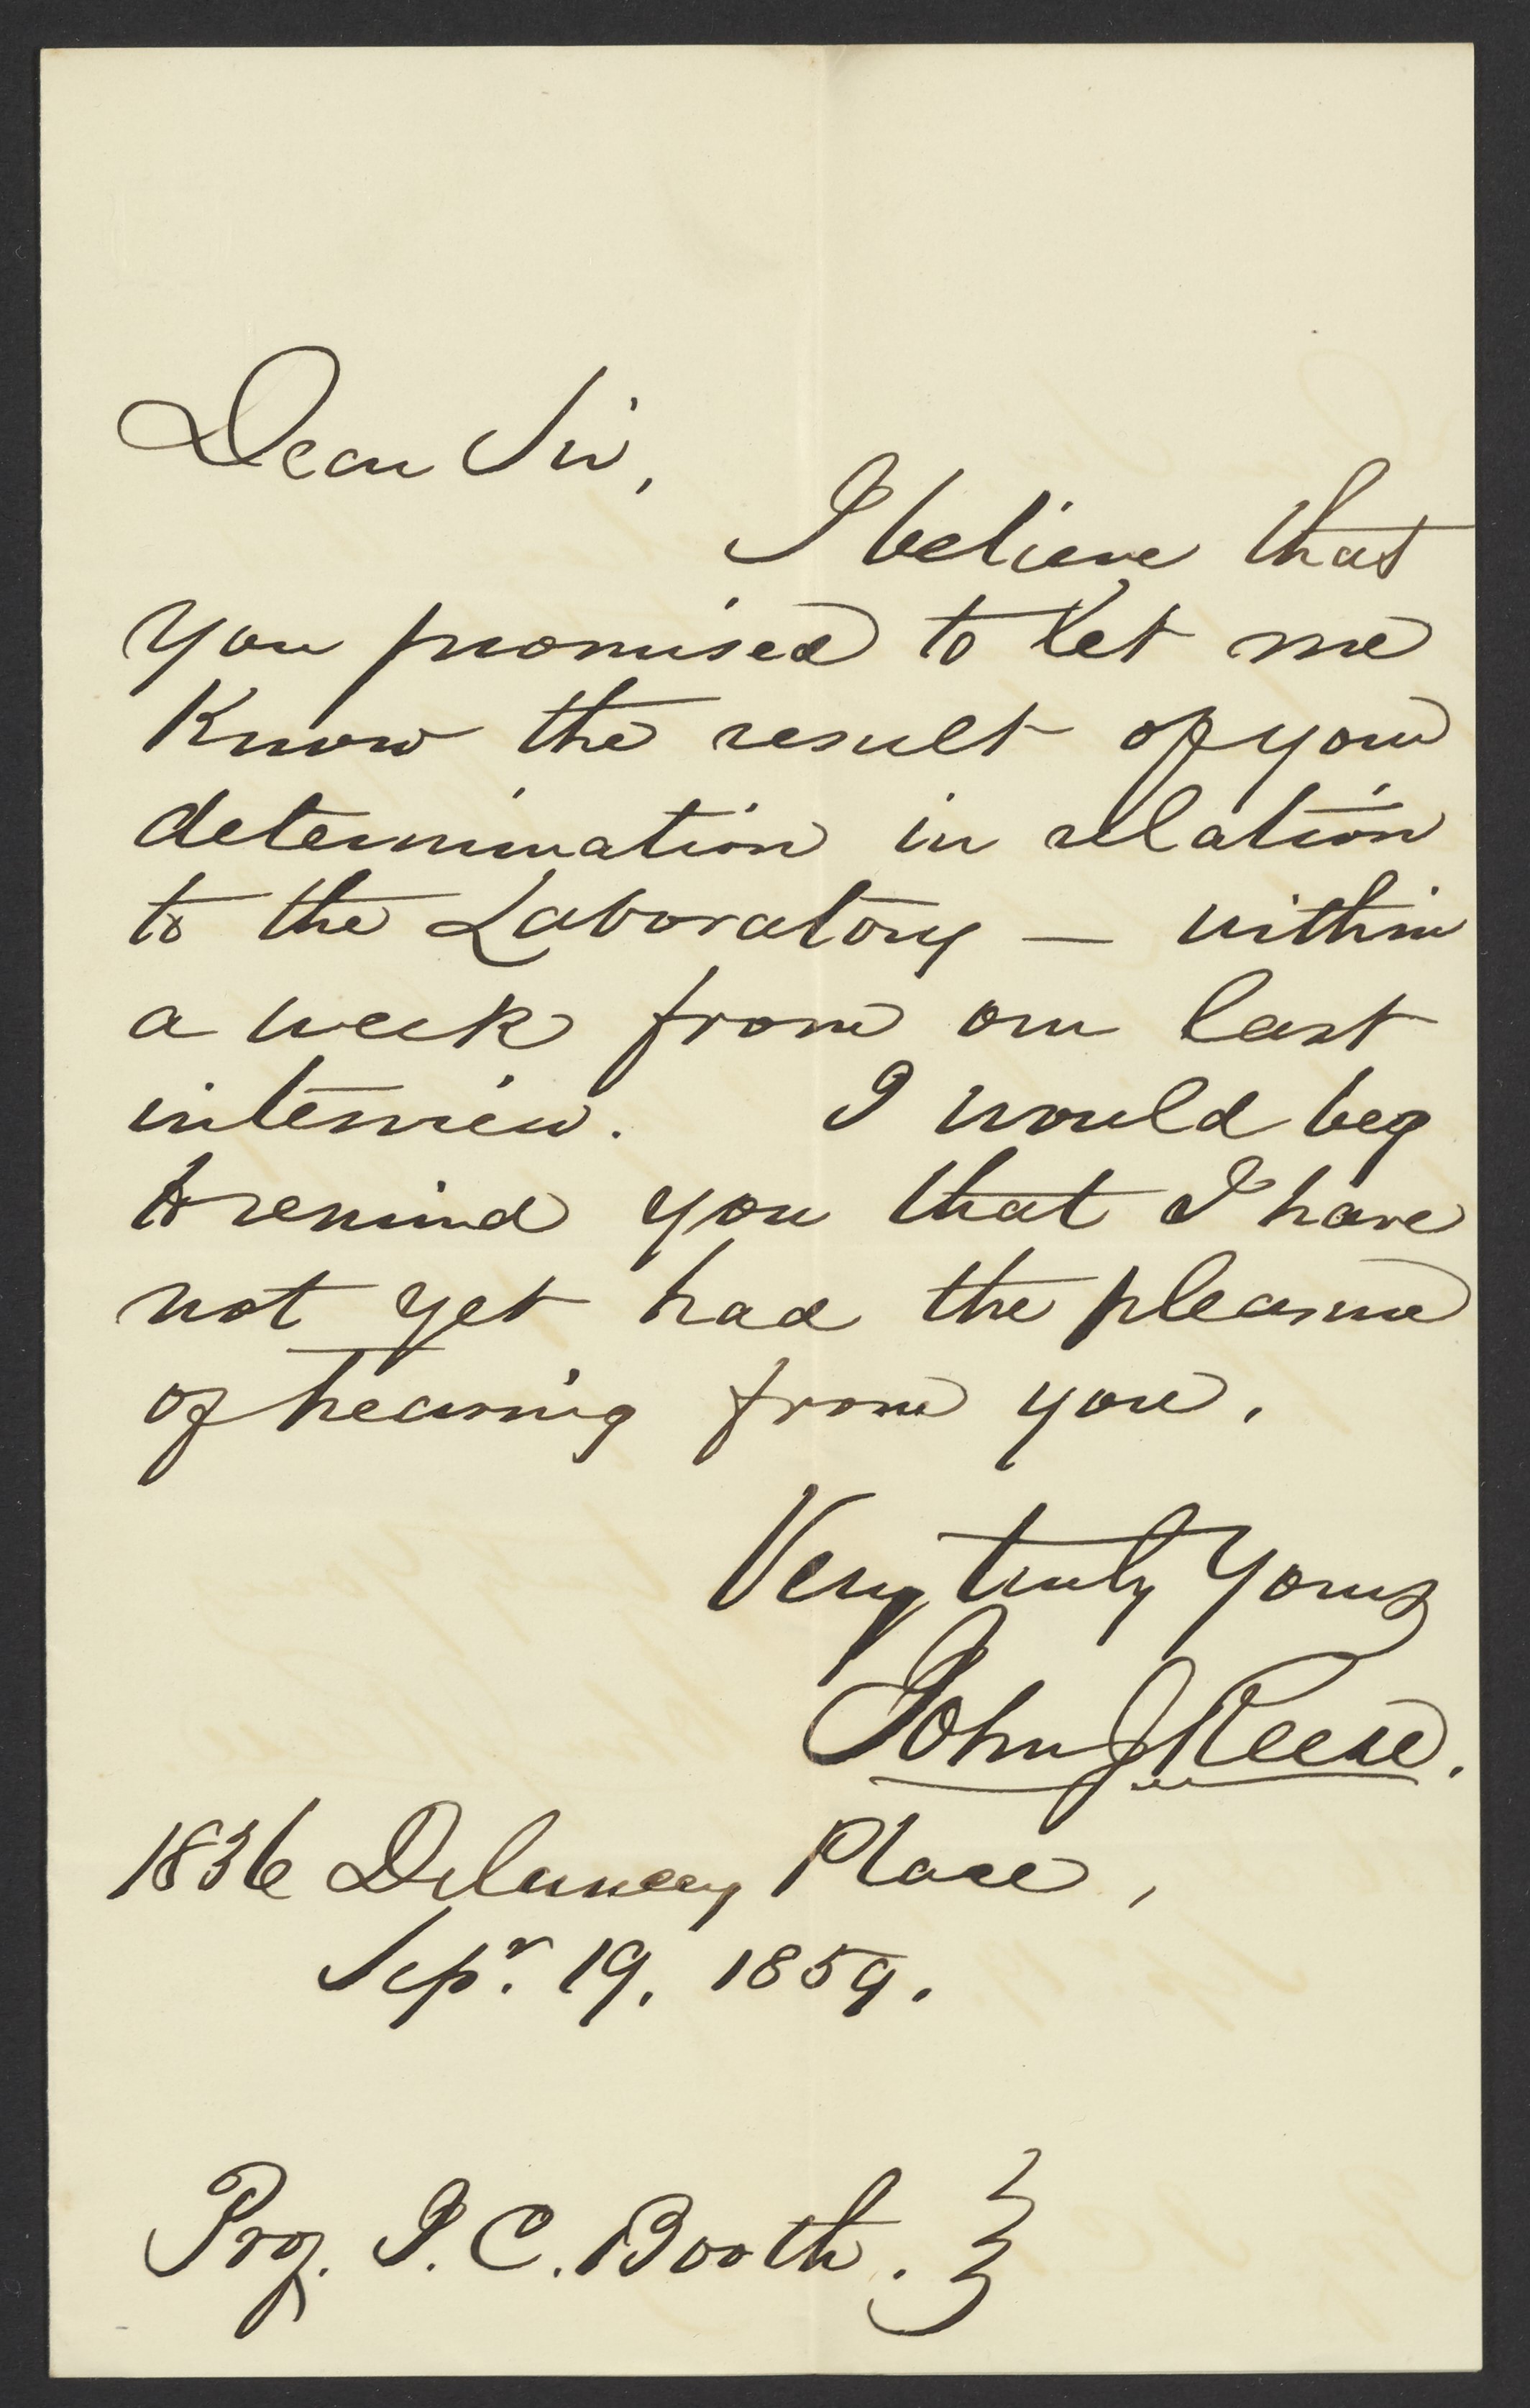 Dear Sir,
I believe that
you promised to let me
Know the result of your
determination in relation
to the Laboratory — within
a week from our last
interview. I would beg
to remind you that I have
not yet had the pleasure
of hearing from you.
Very truly Yours
John J. Reese.
1836 Delancey Place,
Sepr. 19. 1859.
Prof. J. C. Booth. }